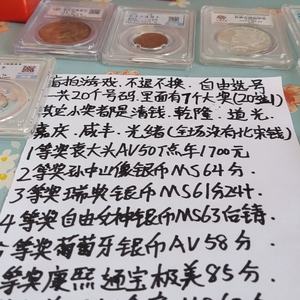 盲拍游戏.不退不换.自由选号
一共20个号码.里面有7个大奖(20选1)
其它小奖都是清钱.乾隆.道光.
嘉庆.咸丰.光绪(全场没有北宋钱)
1等奖袁大头AV50丁点年1700元
2等奖孙中山像银币MS64分.
3等奖瑞典银币MS61分24H.
4等奖自由女神银币MS63后铸
5等奖葡萄牙银币AV58分.
6等奖康熙通宝极美85分.